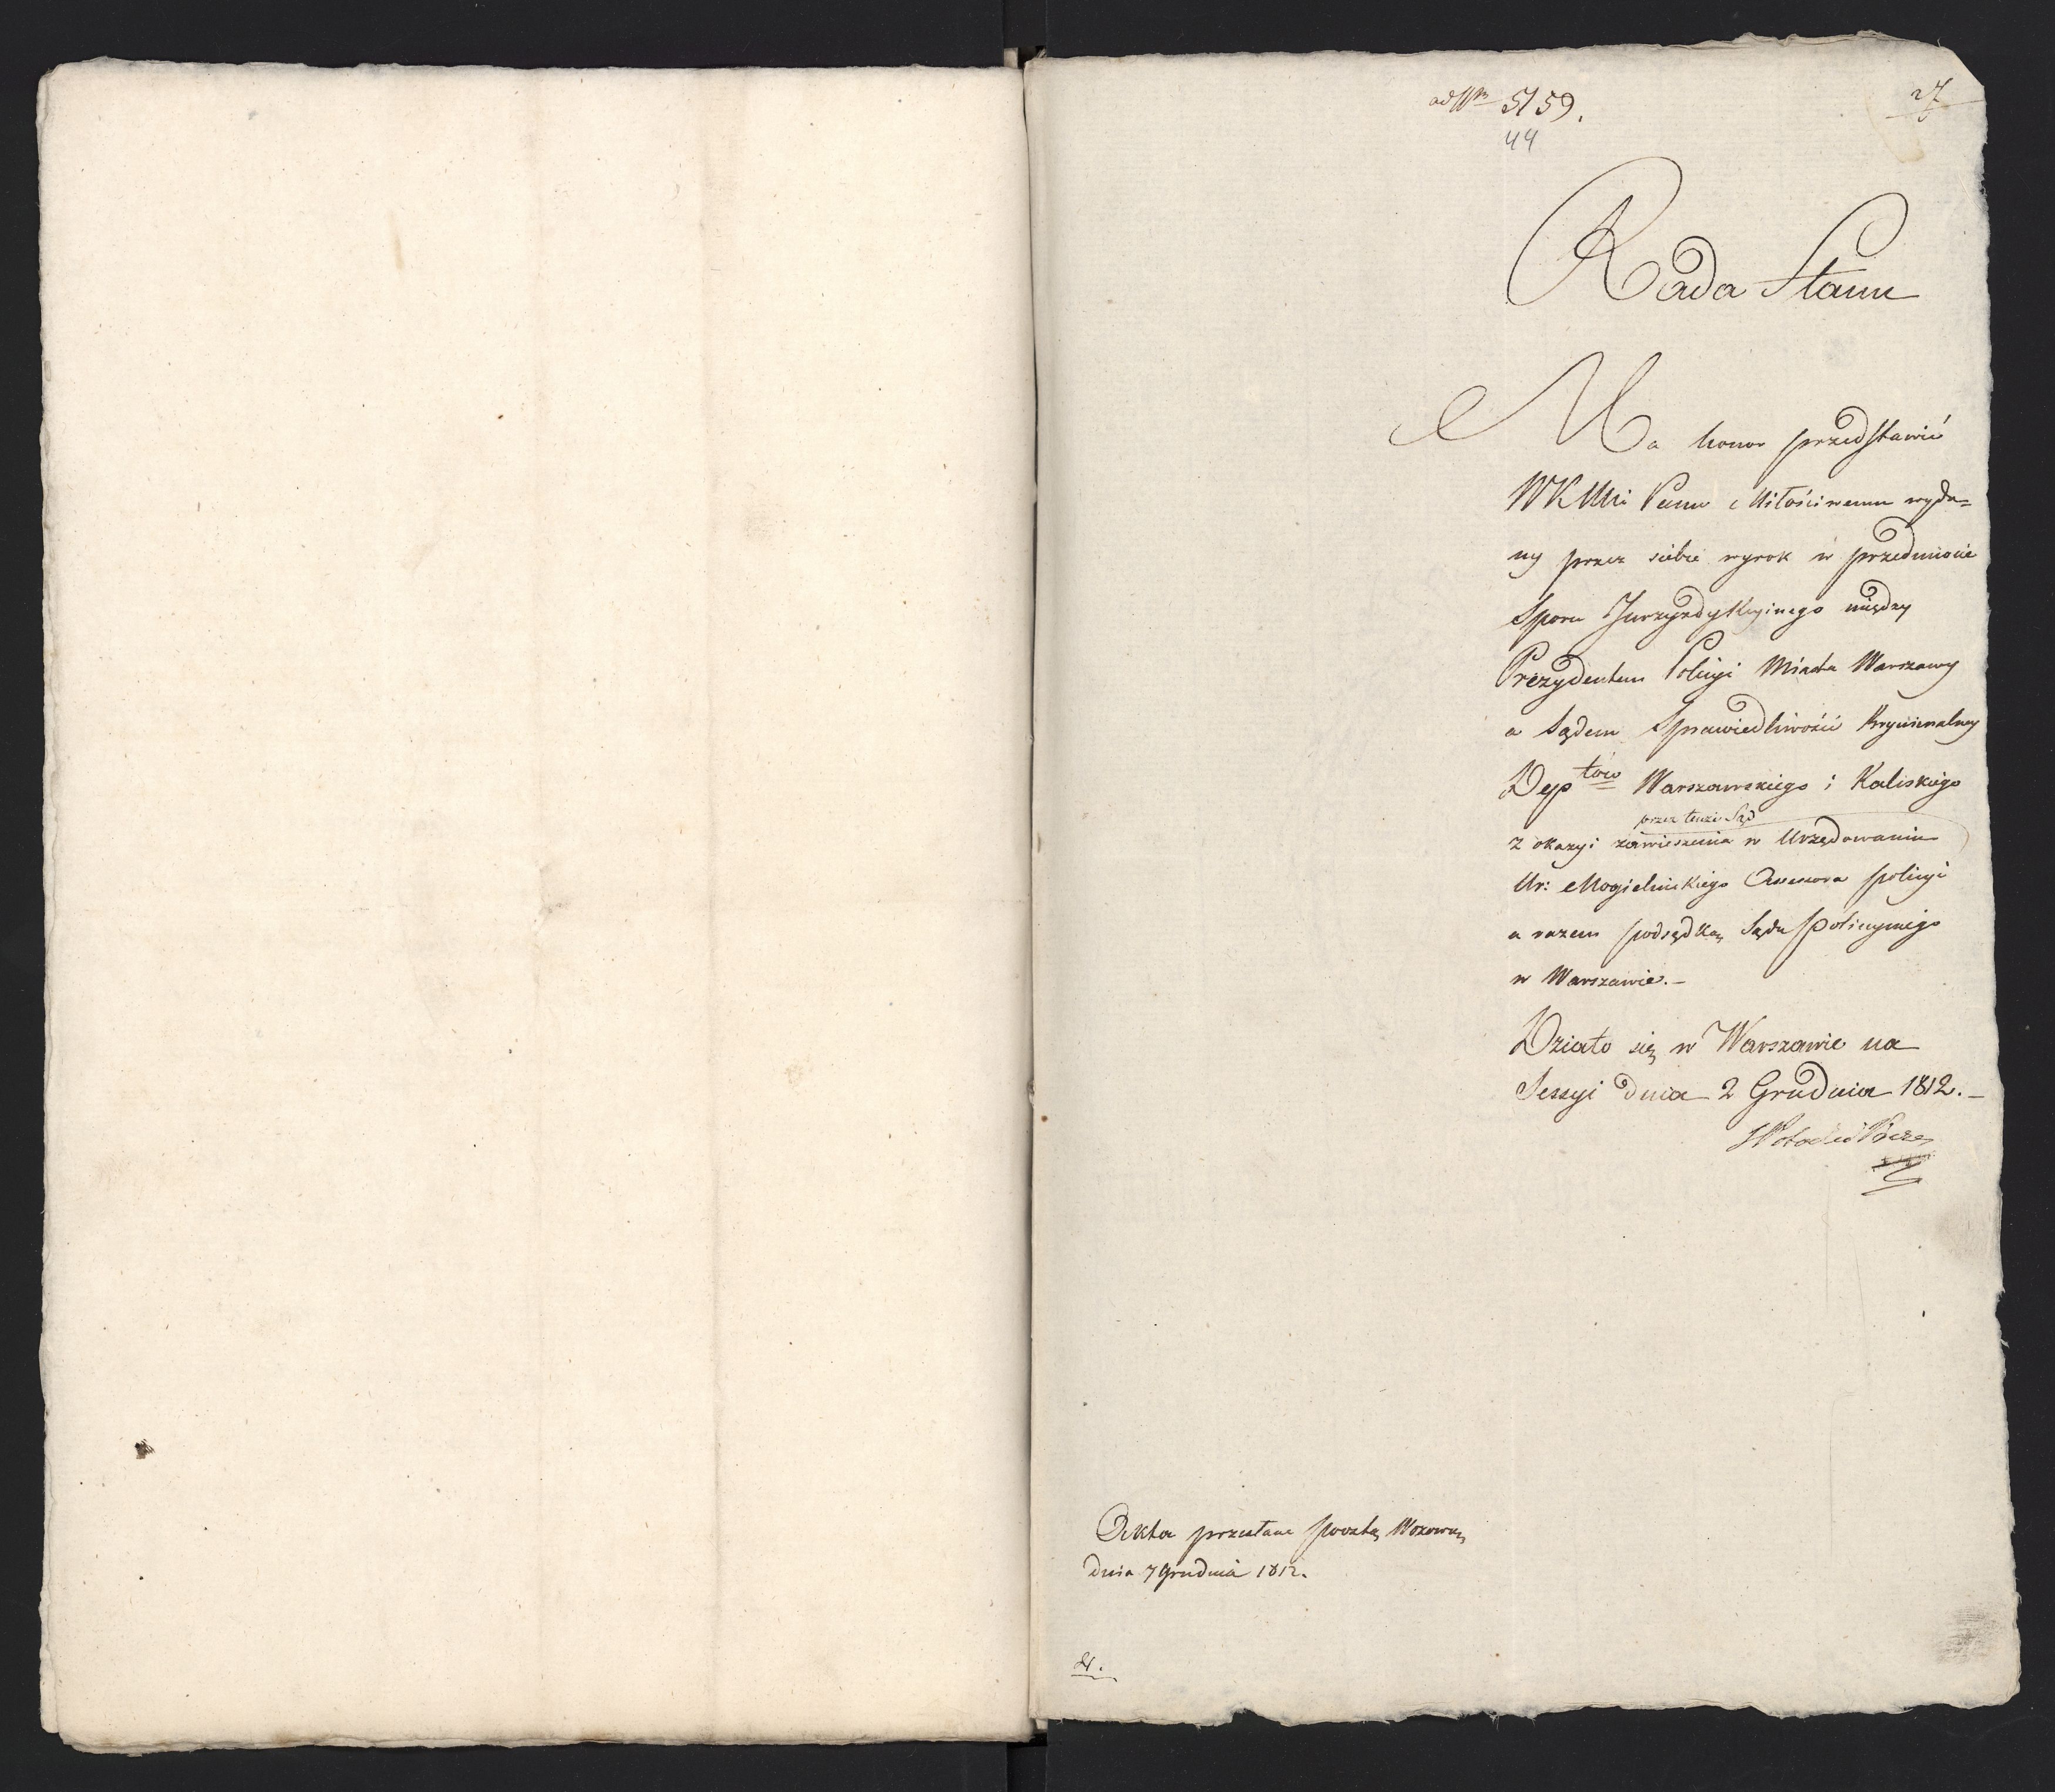 ad Nrm 5159.
27
44
Rada Stanu
Ma honor przedstawić
WKMci Panu Miłościwemu wyda=
ny przez siebie wyrok w przedmiocie
Sporu Juryzdykcyinego między
Prezydentem Policyi Miasta Warszawy
a Sądem Sprawiedliwości Kryminalney
Deptów Warszawskiego i Kaliskiego
przez tenże Sąd
z okazyi zawieszenia w Urzędowaniu
Ur: Mogielnickiego Assessora policyi
a razem podsędka Sądu Policyinego
w Warszawie.—
Działo się w Warszawie na
Sessyi dnia 2 Grudnia 1812.—
Akta przesłane pocztą Wozową
dnia 7 Grudnia 1812.